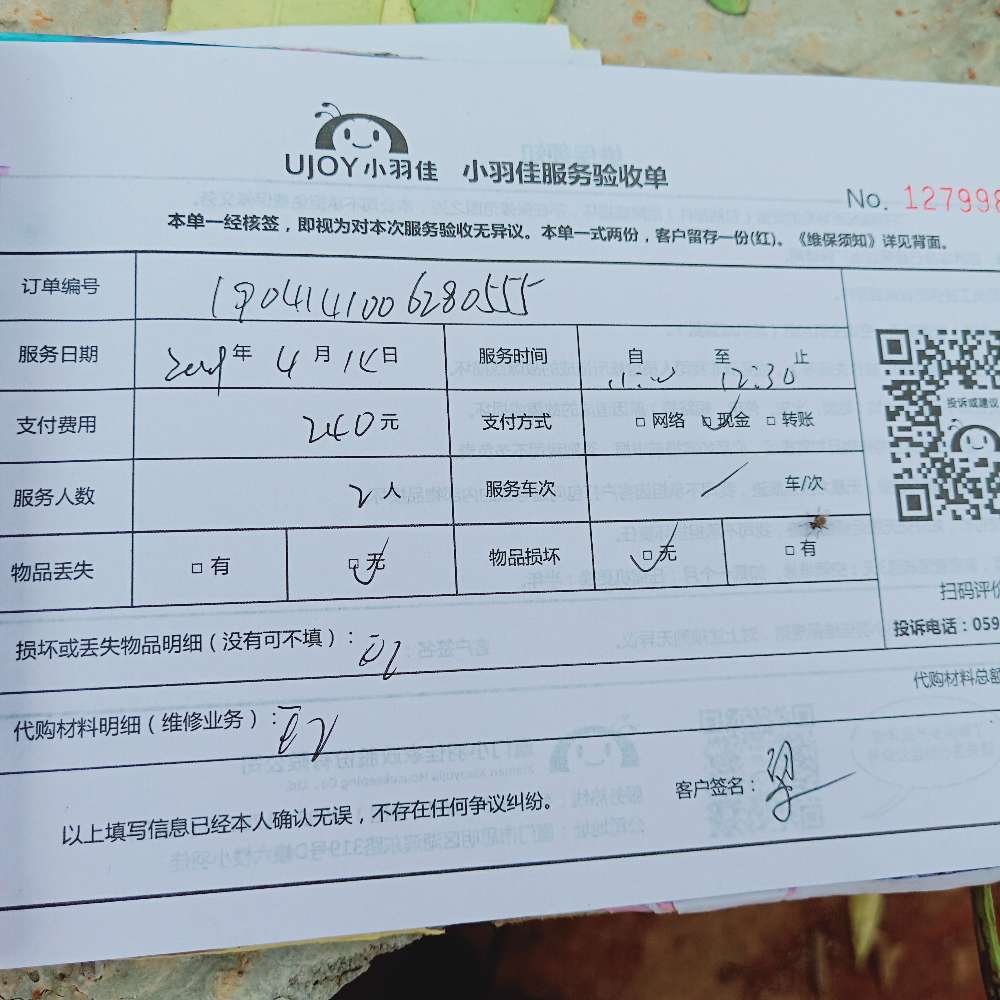 UJOY小羽佳 小羽佳服务验收单
No. 127998
本单一经核签，即视为对本次服务验收无异议。本单一式两份，客户留存一份(红)。《维保须知》详见背面。
订单编号 1904141006280555
服务日期 2019年4月14日 服务时间 自 至 12:30 止
支付费用 240元 支付方式 □网络 □现金 □转账
投诉或建议
服务人数 2人 服务车次 车/次
物品丢失 □有 □无 物品损坏 □无 □有
扫码评价
投诉电话：059
损坏或丢失物品明细（没有可不填）：
代购材料总额
代购材料明细（维修业务）：
以上填写信息已经本人确认无误，不存在任何争议纠纷。
客户签名：